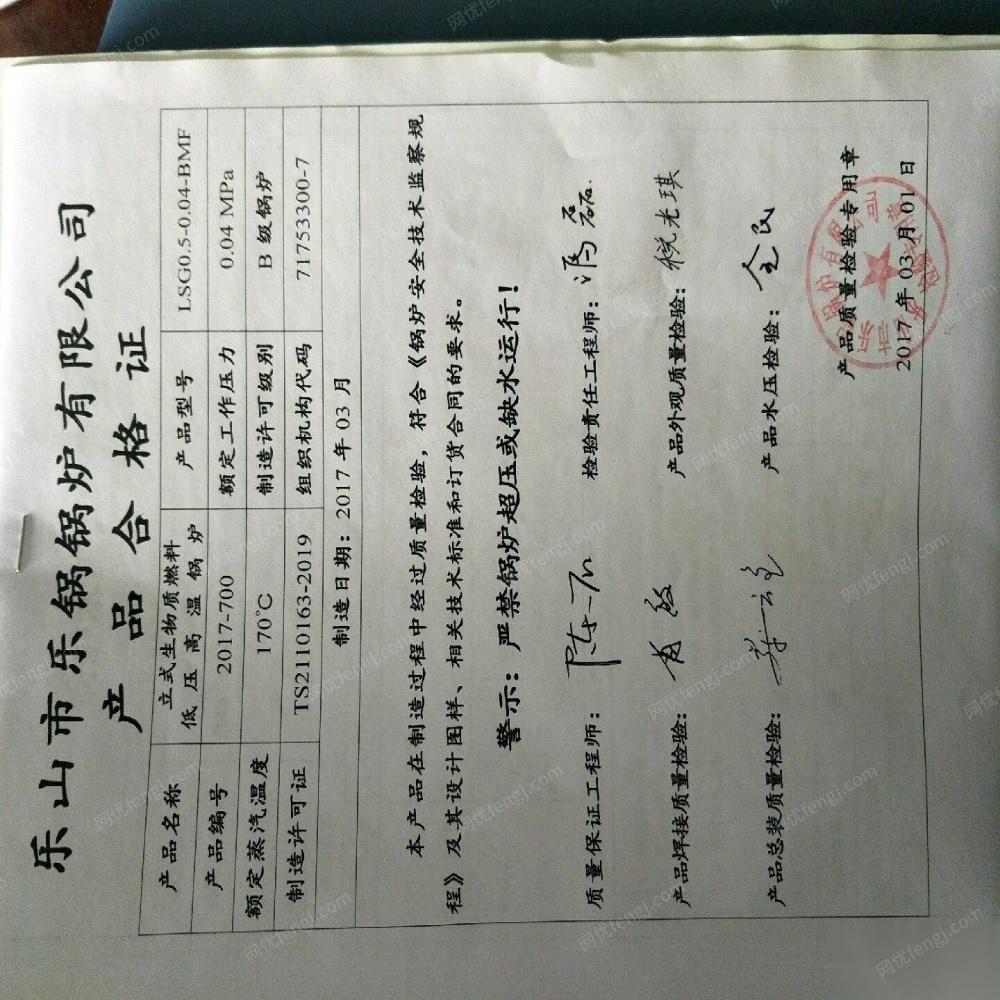 乐山市乐锅锅炉有限公司
产品合格证
产品名称 立式生物质燃料低压高温锅炉 产品型号 LSG0.5-0.04-BMF
产品编号 2017-700 额定工作压力 0.04 MPa
额定蒸汽温度 170℃ 制造许可级别 B 级锅炉
制造许可证 TS2110163-2019 组织机构代码 71753300-7
制造日期：2017 年 03 月
本产品在制造过程中经过质量检验，符合《锅炉安全技术监察规
程》及其设计图样、相关技术标准和订货合同的要求。
警示：严禁锅炉超压或缺水运行！
质量保证工程师： 检验责任工程师：冯磊
产品焊接质量检验： 产品外观质量检验：税光琪
产品总装质量检验： 产品水压检验：全民
产品质量检验专用章
2017 年 03 月 01 日
网优fengj.com